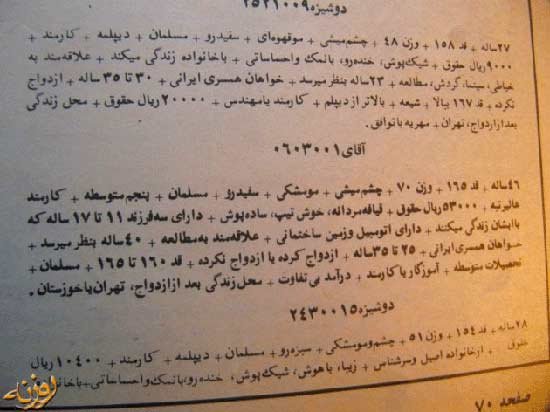 دوشیزه ۲۵۲۱۰۰۹
۲۷ساله + قد ۱۵۸ + وزن ۴۸ + چشم‌میشی + موقهوه‌ای + سفیدرو + مسلمان + دیپلمه + کارمند +
۹۰۰۰ریال حقوق + شیک‌پوش، خنده‌رو، بانمک واحساساتی + باخانواده زندگی میکند + علاقه‌مند به
خیاطی، سینما، گردش، مطالعه + ۲۳ ساله بنظر میرسد + خواهان همسری ایرانی + ۳۰ تا ۳۵ ساله + ازدواج
نکرده + قد ۱۶۷ ببالا + شیعه + بالاتر از دیپلم + کارمند یا مهندس + ۲۰۰۰۰ ریال حقوق + محل زندگی
بعد از ازدواج، تهران + مهریه با توافق.
آقای ۰۶۰۳۰۰۱
۴۶ ساله + قد ۱۶۵ + وزن ۷۰ + چشم میشی + مومشکی + سفیدرو + مسلمان + پنجم متوسطه + کارمند
عالیرتبه + ۵۳۰۰۰ ریال حقوق + قیافه مردانه، خوش تیپ، ساده‌پوش + دارای سه فرزند ۱۱ تا ۱۷ ساله که
با ایشان زندگی میکنند + دارای اتومبیل وزمین ساختمانی + علاقه‌مند به مطالعه + ۴۰ ساله بنظر میرسد +
خواهان همسری ایرانی + ۲۵ تا ۳۵ ساله + ازدواج کرده یا ازدواج نکرده + قد ۱۶۰ تا ۱۶۵ + مسلمان +
تحصیلات متوسطه + آموزگار یا کارمند + درآمد بی‌تفاوت + محل زندگی بعد از ازدواج، تهران یا خوزستان.
دوشیزه ۲۴۳۰۰۱۵
۲۸ ساله + قد ۱۵۴ + وزن ۵۱ + چشم ومومشکی + سبزه‌رو + مسلمان + دیپلمه + کارمند + ۱۰۴۰۰ ریال
حقوق + ازخانواده اصیل وسرشناس + زیبا، باهوش، شیک‌پوش، خنده‌رو، بانمک واحساساتی + باخانواده
صفحه ۷۰
روزنه